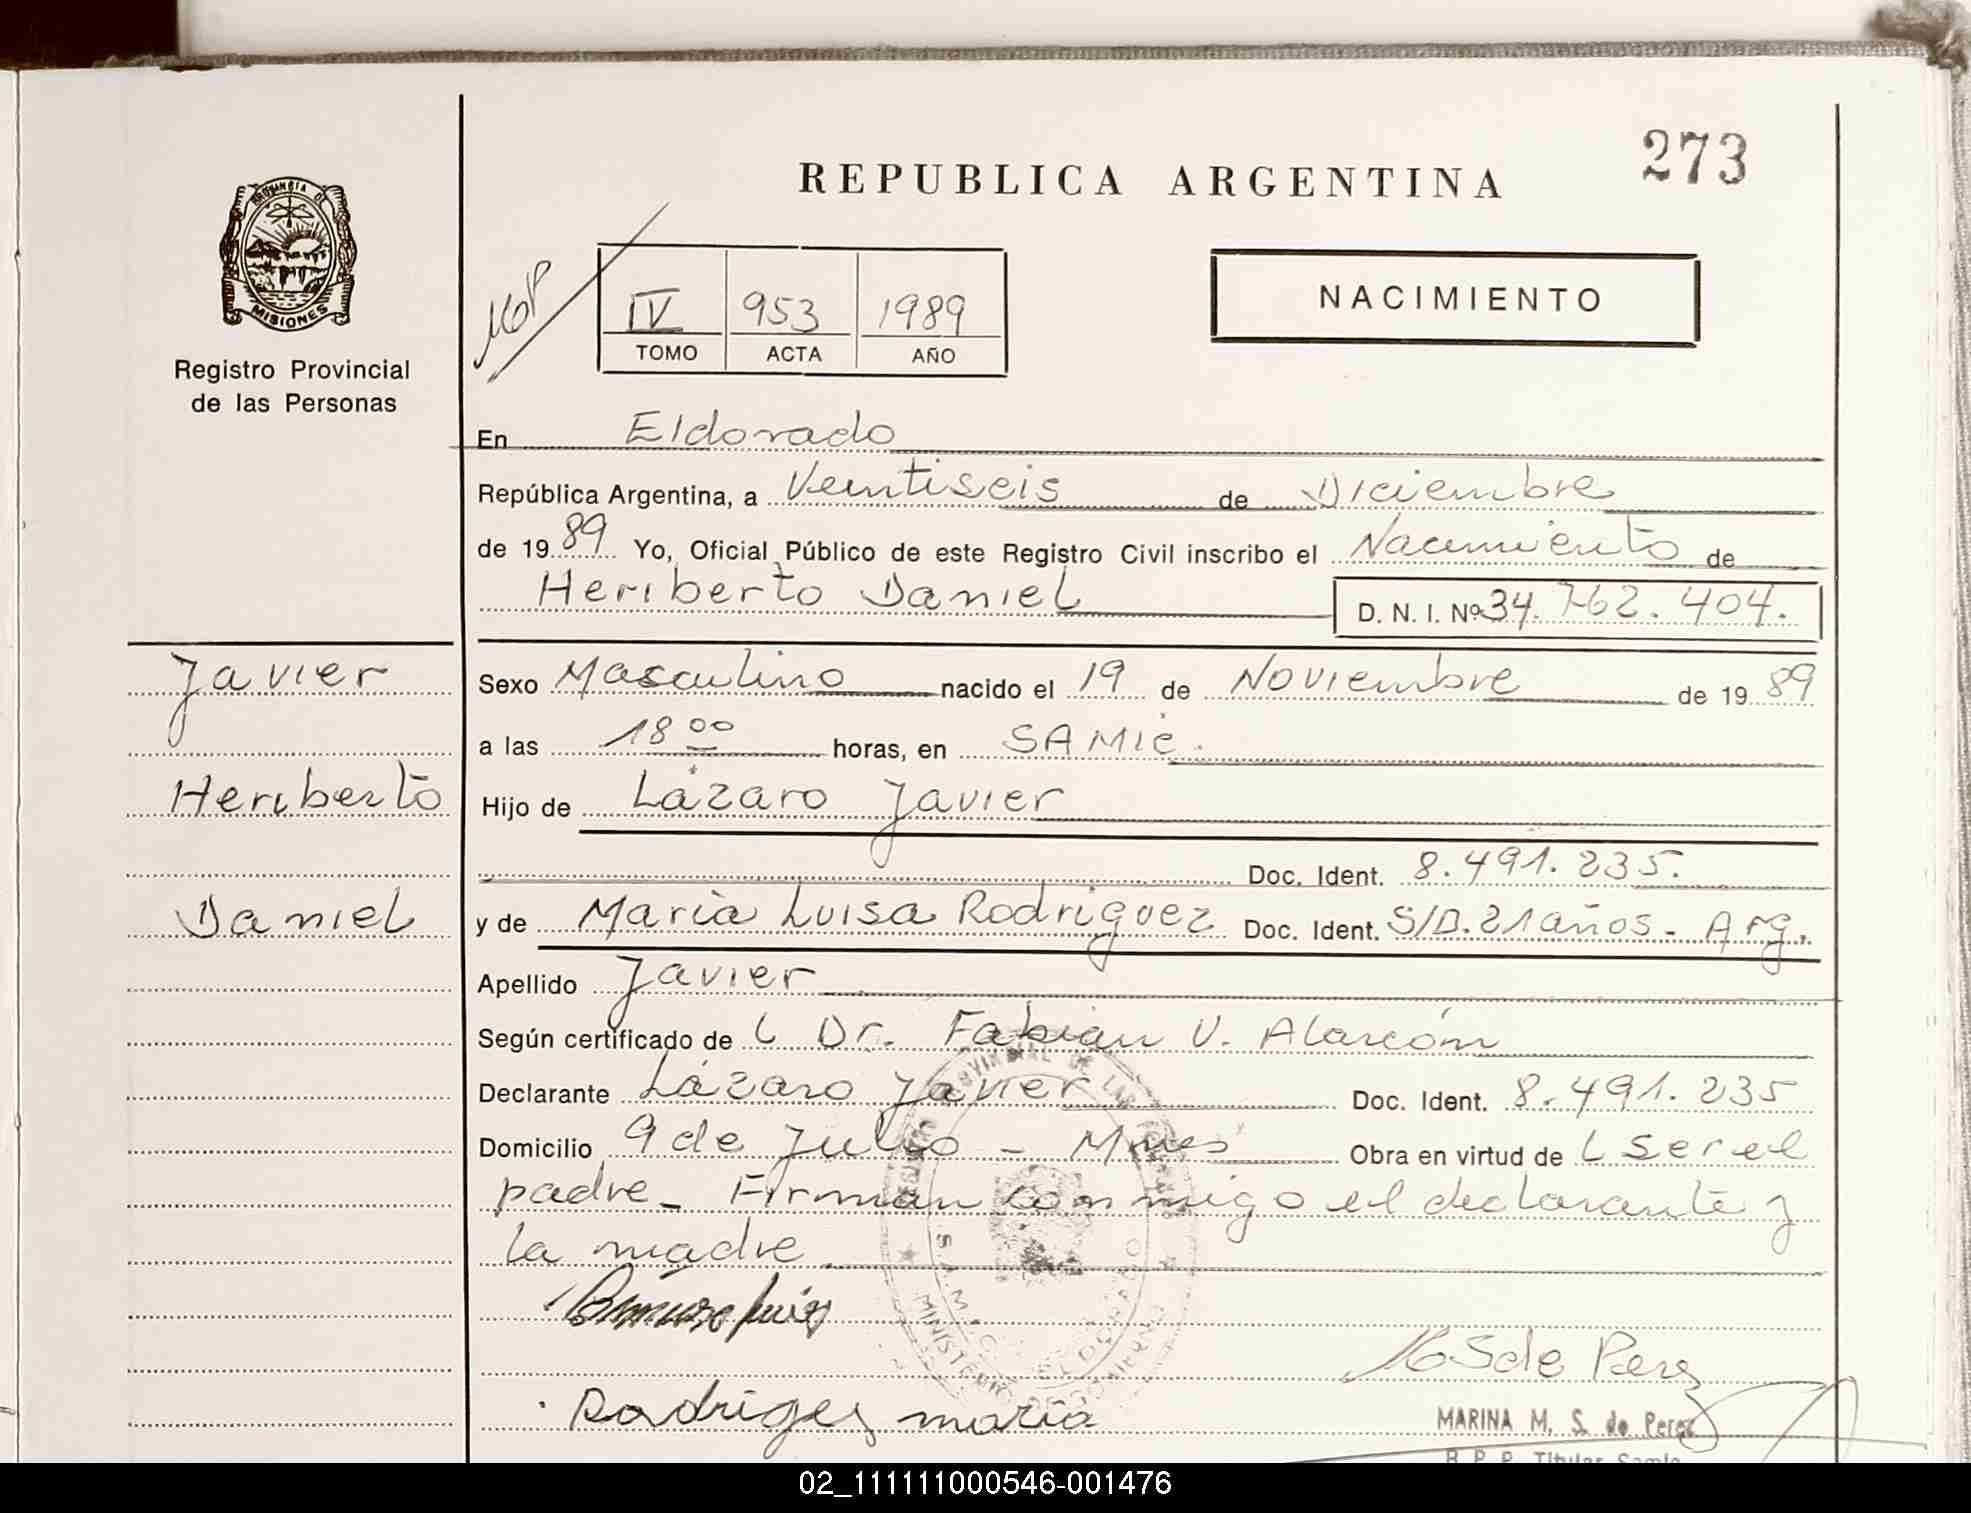 273
REPUBLICA ARGENTINA
PROVINCIA D
MISIONES
Registro Provincial
de las Personas
IV 953 1989
TOMO ACTA AÑO
NACIMIENTO
En Eldorado
República Argentina, a Veintiseis de Diciembre
de 1989 Yo, Oficial Público de este Registro Civil inscribo el Nacimiento de
Heriberto Daniel D. N. I. Nº 34.762.404.
Javier
Heriberto
Daniel
Sexo Masculino nacido el 19 de Noviembre de 1989
a las 18 00 horas, en SAMIC.
Hijo de Lázaro Javier
Doc. Ident. 8.491.235.
y de María Luisa Rodriguez Doc. Ident. S/D. 21 años - Arg.
Apellido Javier
Según certificado de L Dr. Fabian V. Alarcón
Declarante Lázaro Javier Doc. Ident. 8.491.235
Domicilio 9 de Julio - Mnes Obra en virtud de L ser el
padre - Firman conmigo el declarante y
la madre
MINISTERIO DE GOBIERNO
S.A.M.I.C. ELDORADO
M S de Perez
Rodrigez maria
MARINA M. S. de Perez
R. P. P. Titular Samic
02_111111000546-001476